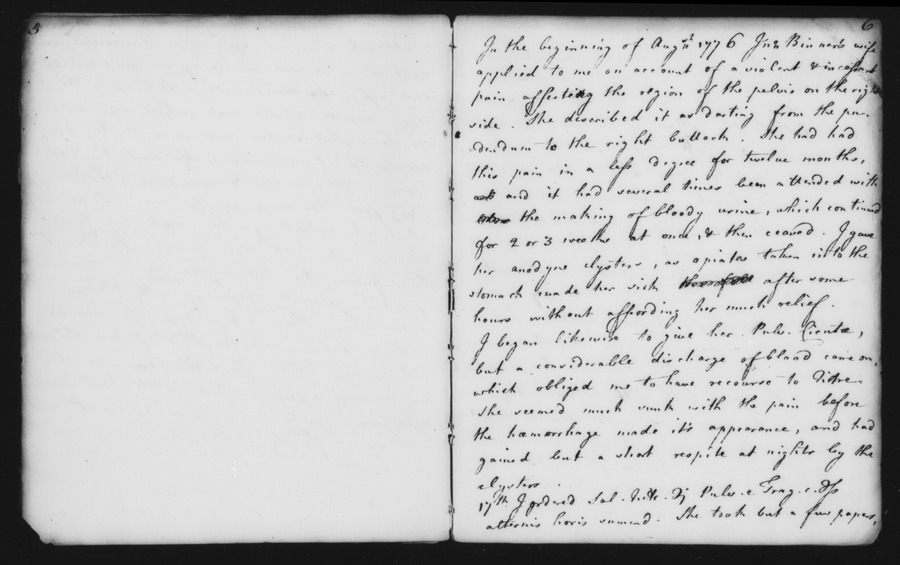 5
6
In the beginning of Augst 1776 Jno Binnerts wife
applied to me on account of a violent & incessant
pain affecting the region of the pelvis on the right
side. She described it as darting from the pu-
dendum to the right buttock. She had had
this pain in a less degree for twelve months,
and it had several times been attended with
the making of bloody urine, which continued
for 2 or 3 weeks at once, & then ceased. I gave
her anodyne clysters, as opiates taken into the
stomach made her sick after some
hours without affording her much relief.
I began likewise to give her Pulv. Cicutæ,
but a considerable discharge of blood came on,
which obliged me to have recourse to Nitre
She seemed much sunk with the pain before
the hæmorrhage made it's appearance, and had
gained but a short respite at nights by the
clysters.
17th I ordered Sal. Nitr. Pulv. e Trag. c.
alternis horis sumend. She took but a few papers,